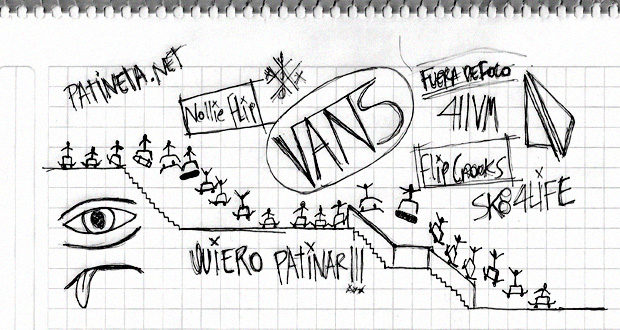 PATINETA.NET
Nollie Flip
VANS
FUERA DE FOCO
411VM
Flip CROOKS
SK84LIFE
QUIERO PATINAR!!!